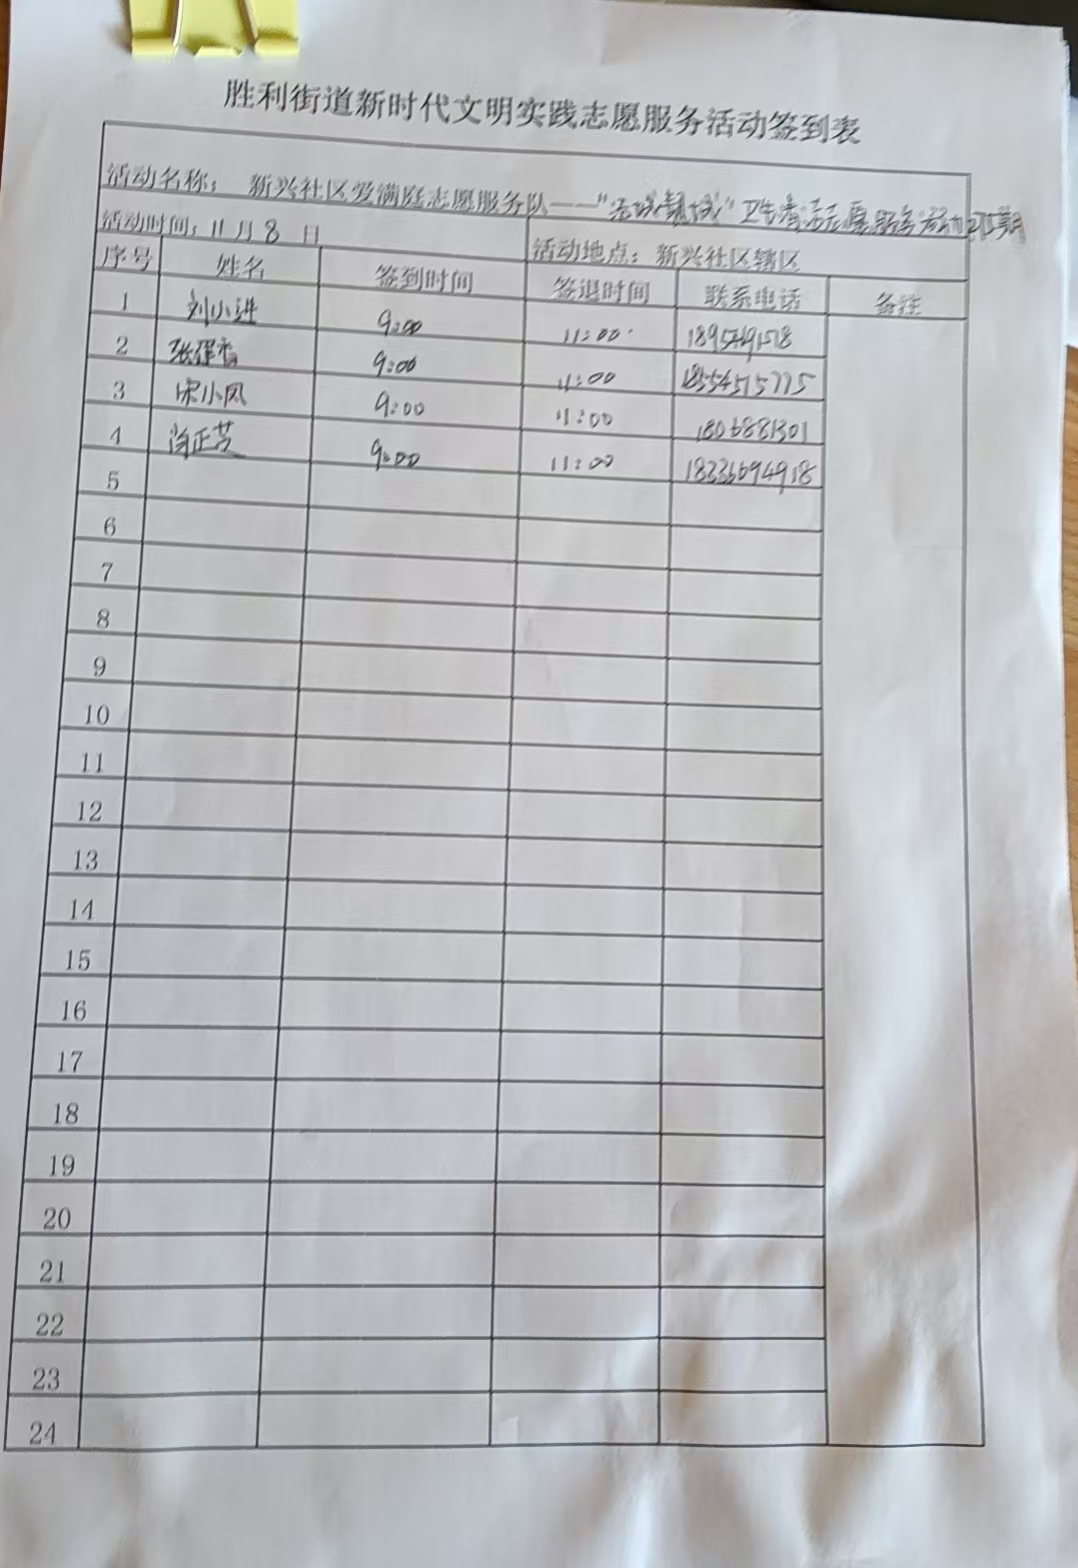 胜利街道新时代文明实践志愿服务活动签到表
活动名称： 新兴社区爱满庭志愿服务队——“ 城” 卫生清洁志愿服务活动
活动时间：11月 8 日 活动地点：新兴社区辖区
序号 姓名 签到时间 签退时间 联系电话 备注
1 刘小进 9:00 11:00
2 9:00 11:00 18554515775
3 宋小凤 9:00 11:00
4 9:00 11:00
5
6
7
8
9
10
11
12
13
14
15
16
17
18
19
20
21
22
23
24